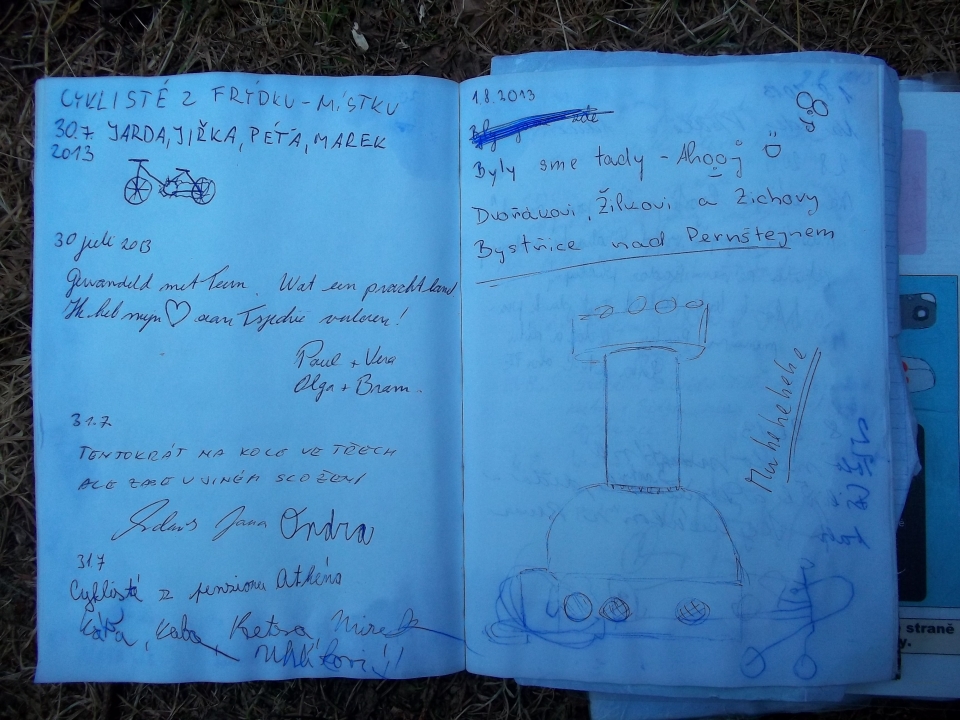 CYKLISTÉ Z FRÝDKU-MÍSTKU
30.7 JARDA, JIŘKA, PÉŤA, MAREK
2013
30 juli 2013
Gewandeld met Teun. Wat een prachtland
Ik heb mijn ♡ aan Tsjechië verloren!
Paul + Vera
Olga + Bram.
31.7
TENTOKRÁT NA KOLE VE TŘECH
ALE ZASE V JINÉM SLOŽENÍ
Jana Ondra
31.7
Cyklisté z penzionu Athéna
Kába, Kuba, Mirek
1.8.2013
zde
Byly sme tady - Ahooj
Dvořákovi, Žilkovi a Zichovy
Bystřice nad Pernštejnem
Muhehehehe
straně
y.